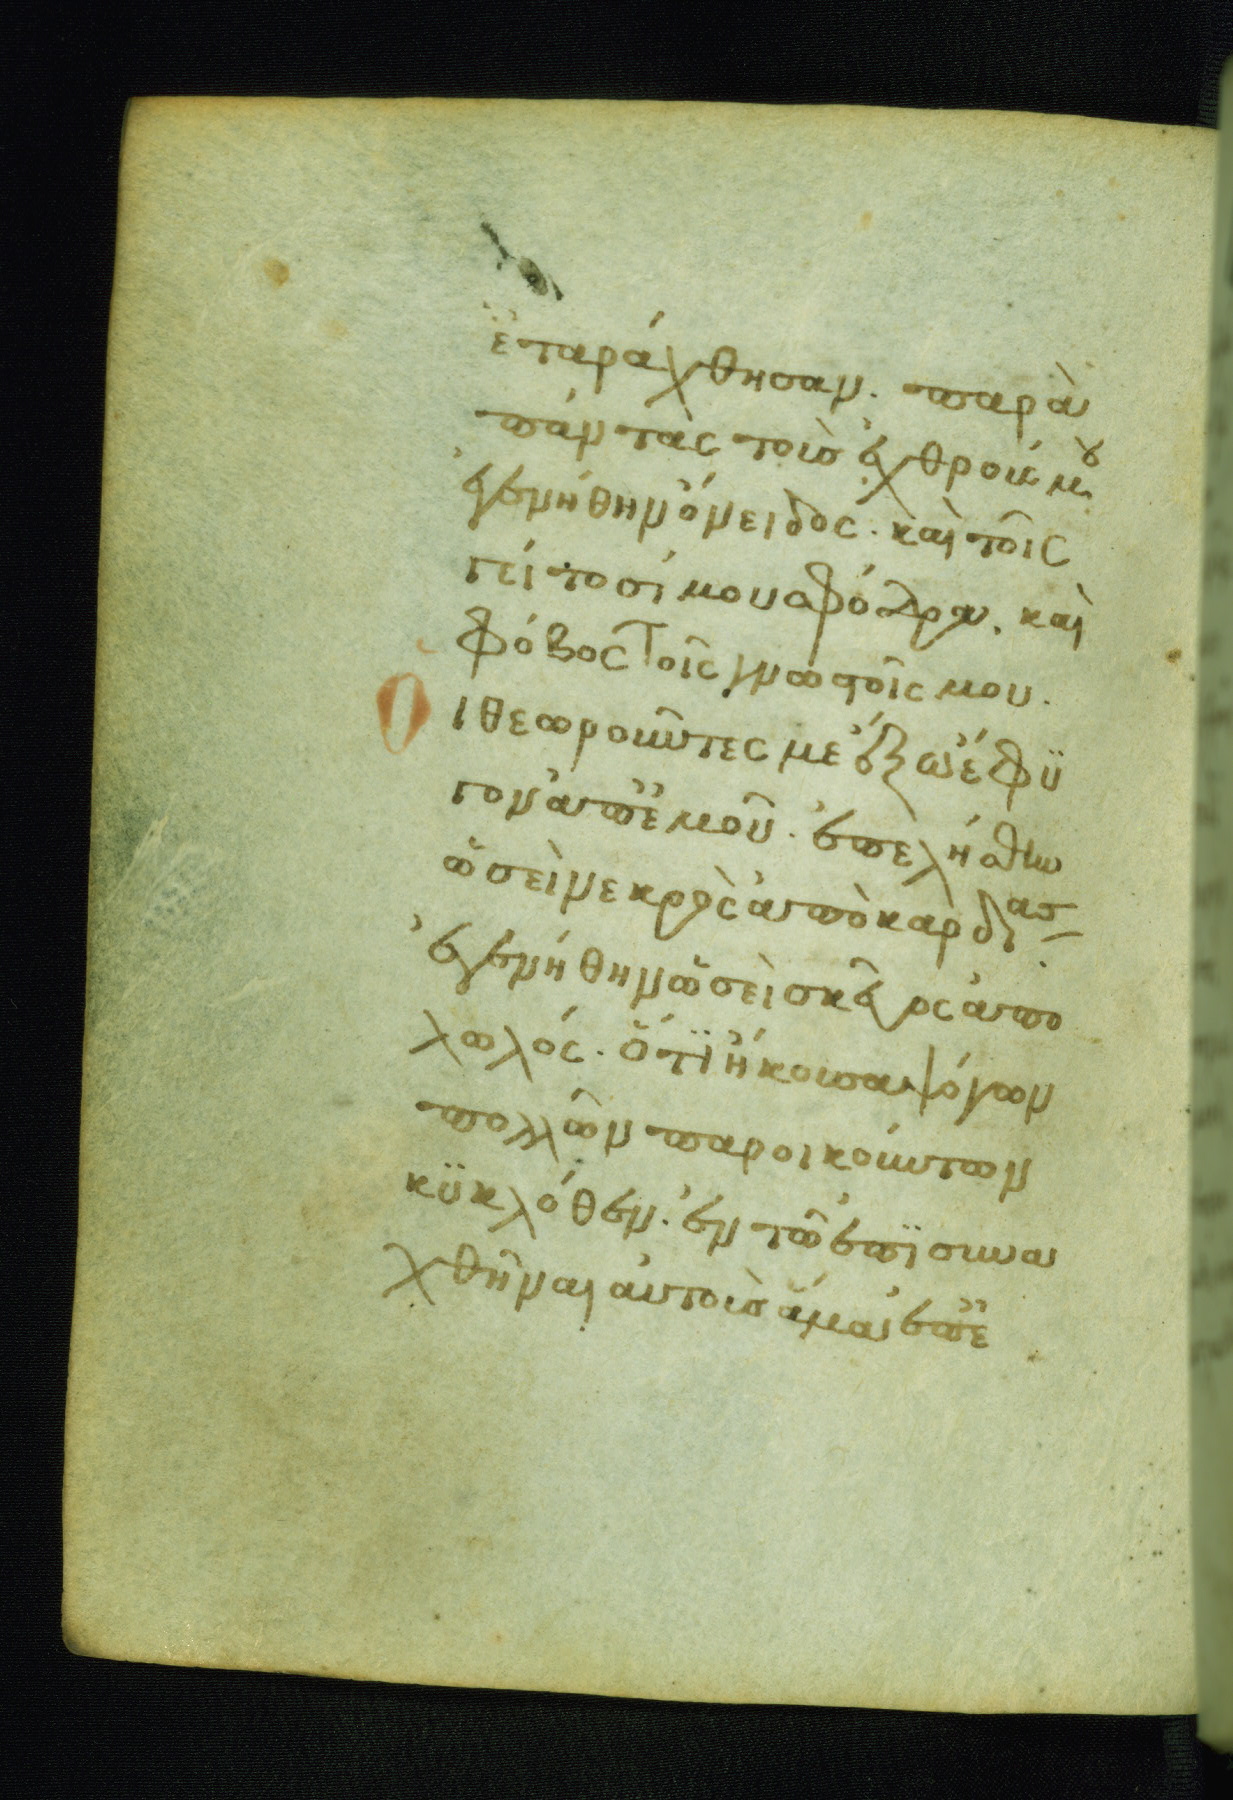 ἐταράχθησαν. παρὰ
πάντας τοὺς ἐχθρούς μου
ἐγενήθην ὄνειδος. καὶ τοῖς
γείτοσί μου σφόδρα. καὶ
φόβος τοῖς γνωστοῖς μου.
Οἱ θεωροῦντές με ἔξω ἔφϋ
γον ἀπ' ἐμοῦ. ἐπελήσθην
ὡσεὶ νεκρὸς ἀπὸ καρδίας.
ἐγενήθην ὡσεὶ σκεῦος ἀπο
λωλός. ὅτϊ ἤκουσα ψόγον
πολλῶν παροικούντων
κϋκλόθεν. ἐν τῶ ἐπϊσυνα
χθῆναι αὐτοὺς ἅμα ἐπ' ἐ